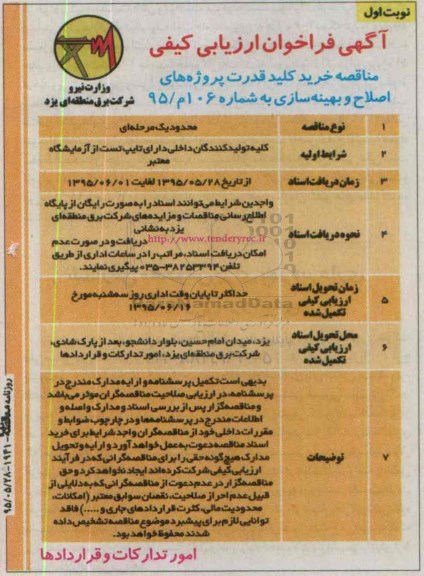 نوبت اول
آگهی فراخوان ارزیابی کیفی
مناقصه خرید کلید قدرت پروژه‌های
اصلاح و بهینه‌سازی به شماره ۱۰۶م/۹۵
وزارت نیرو
شرکت برق منطقه‌ای یزد
۱ نوع مناقصه محدود یک مرحله‌ای
۲ شرایط اولیه کلیه تولیدکنندگان داخلی دارای تایپ تست از آزمایشگاه
معتبر
۳ زمان دریافت اسناد از تاریخ ۱۳۹۵/۰۵/۲۸ لغایت ۱۳۹۵/۰۶/۰۱
۴ نحوه دریافت اسناد
واجدین شرایط می‌توانند اسناد را به صورت رایگان از پایگاه
اطلاع‌رسانی مناقصات و مزایده‌های شرکت برق منطقه‌ای
یزد به نشانی
http://www.tenderyrec.ir دریافت و در صورت عدم
امکان دریافت اسناد، مراتب را در ساعات اداری از طریق
تلفن ۳۸۲۵۳۳۹۴-۰۳۵ پیگیری نمایند.
۵ زمان تحویل اسناد
ارزیابی کیفی
تکمیل شده
حداکثر تا پایان وقت اداری روز سه‌شنبه مورخ
۱۳۹۵/۰۶/۱۶
۶ محل تحویل اسناد
ارزیابی کیفی
تکمیل شده
یزد، میدان امام حسین، بلوار دانشجو، بعد از پارک شادی،
شرکت برق منطقه‌ای یزد، امور تدارکات و قراردادها
۷ توضیحات
بدیهی است تکمیل پرسشنامه و ارایه مدارک مندرج در
پرسشنامه، در ارزیابی صلاحیت مناقصه‌گران موثر می‌باشد
و مناقصه‌گزار پس از بررسی اسناد و مدارک واصله و
اطلاعات مندرج در پرسشنامه‌ها و در چارچوب ضوابط و
مقررات داخلی خود از مناقصه‌گران واجد شرایط برای خرید
اسناد مناقصه دعوت به عمل خواهد آورد و ارایه و تحویل
مدارک هیچ‌گونه حقی را برای مناقصه‌گرانی که در فرآیند
ارزیابی کیفی شرکت کرده‌اند ایجاد نخواهد کرد و حق
مناقصه‌گزار در عدم دعوت از مناقصه‌گرانی که به دلایلی از
قبیل عدم احراز صلاحیت، نقصان سوابق معتبر (امکانات،
محدودیت مالی، کثرت قراردادهای جاری و .....) فاقد
توانایی لازم برای پیشبرد موضوع مناقصه تشخیص داده
شدند محفوظ خواهد بود.
امور تدارکات و قراردادها
۹۵/۰۵/۲۸-۱۹۴۱